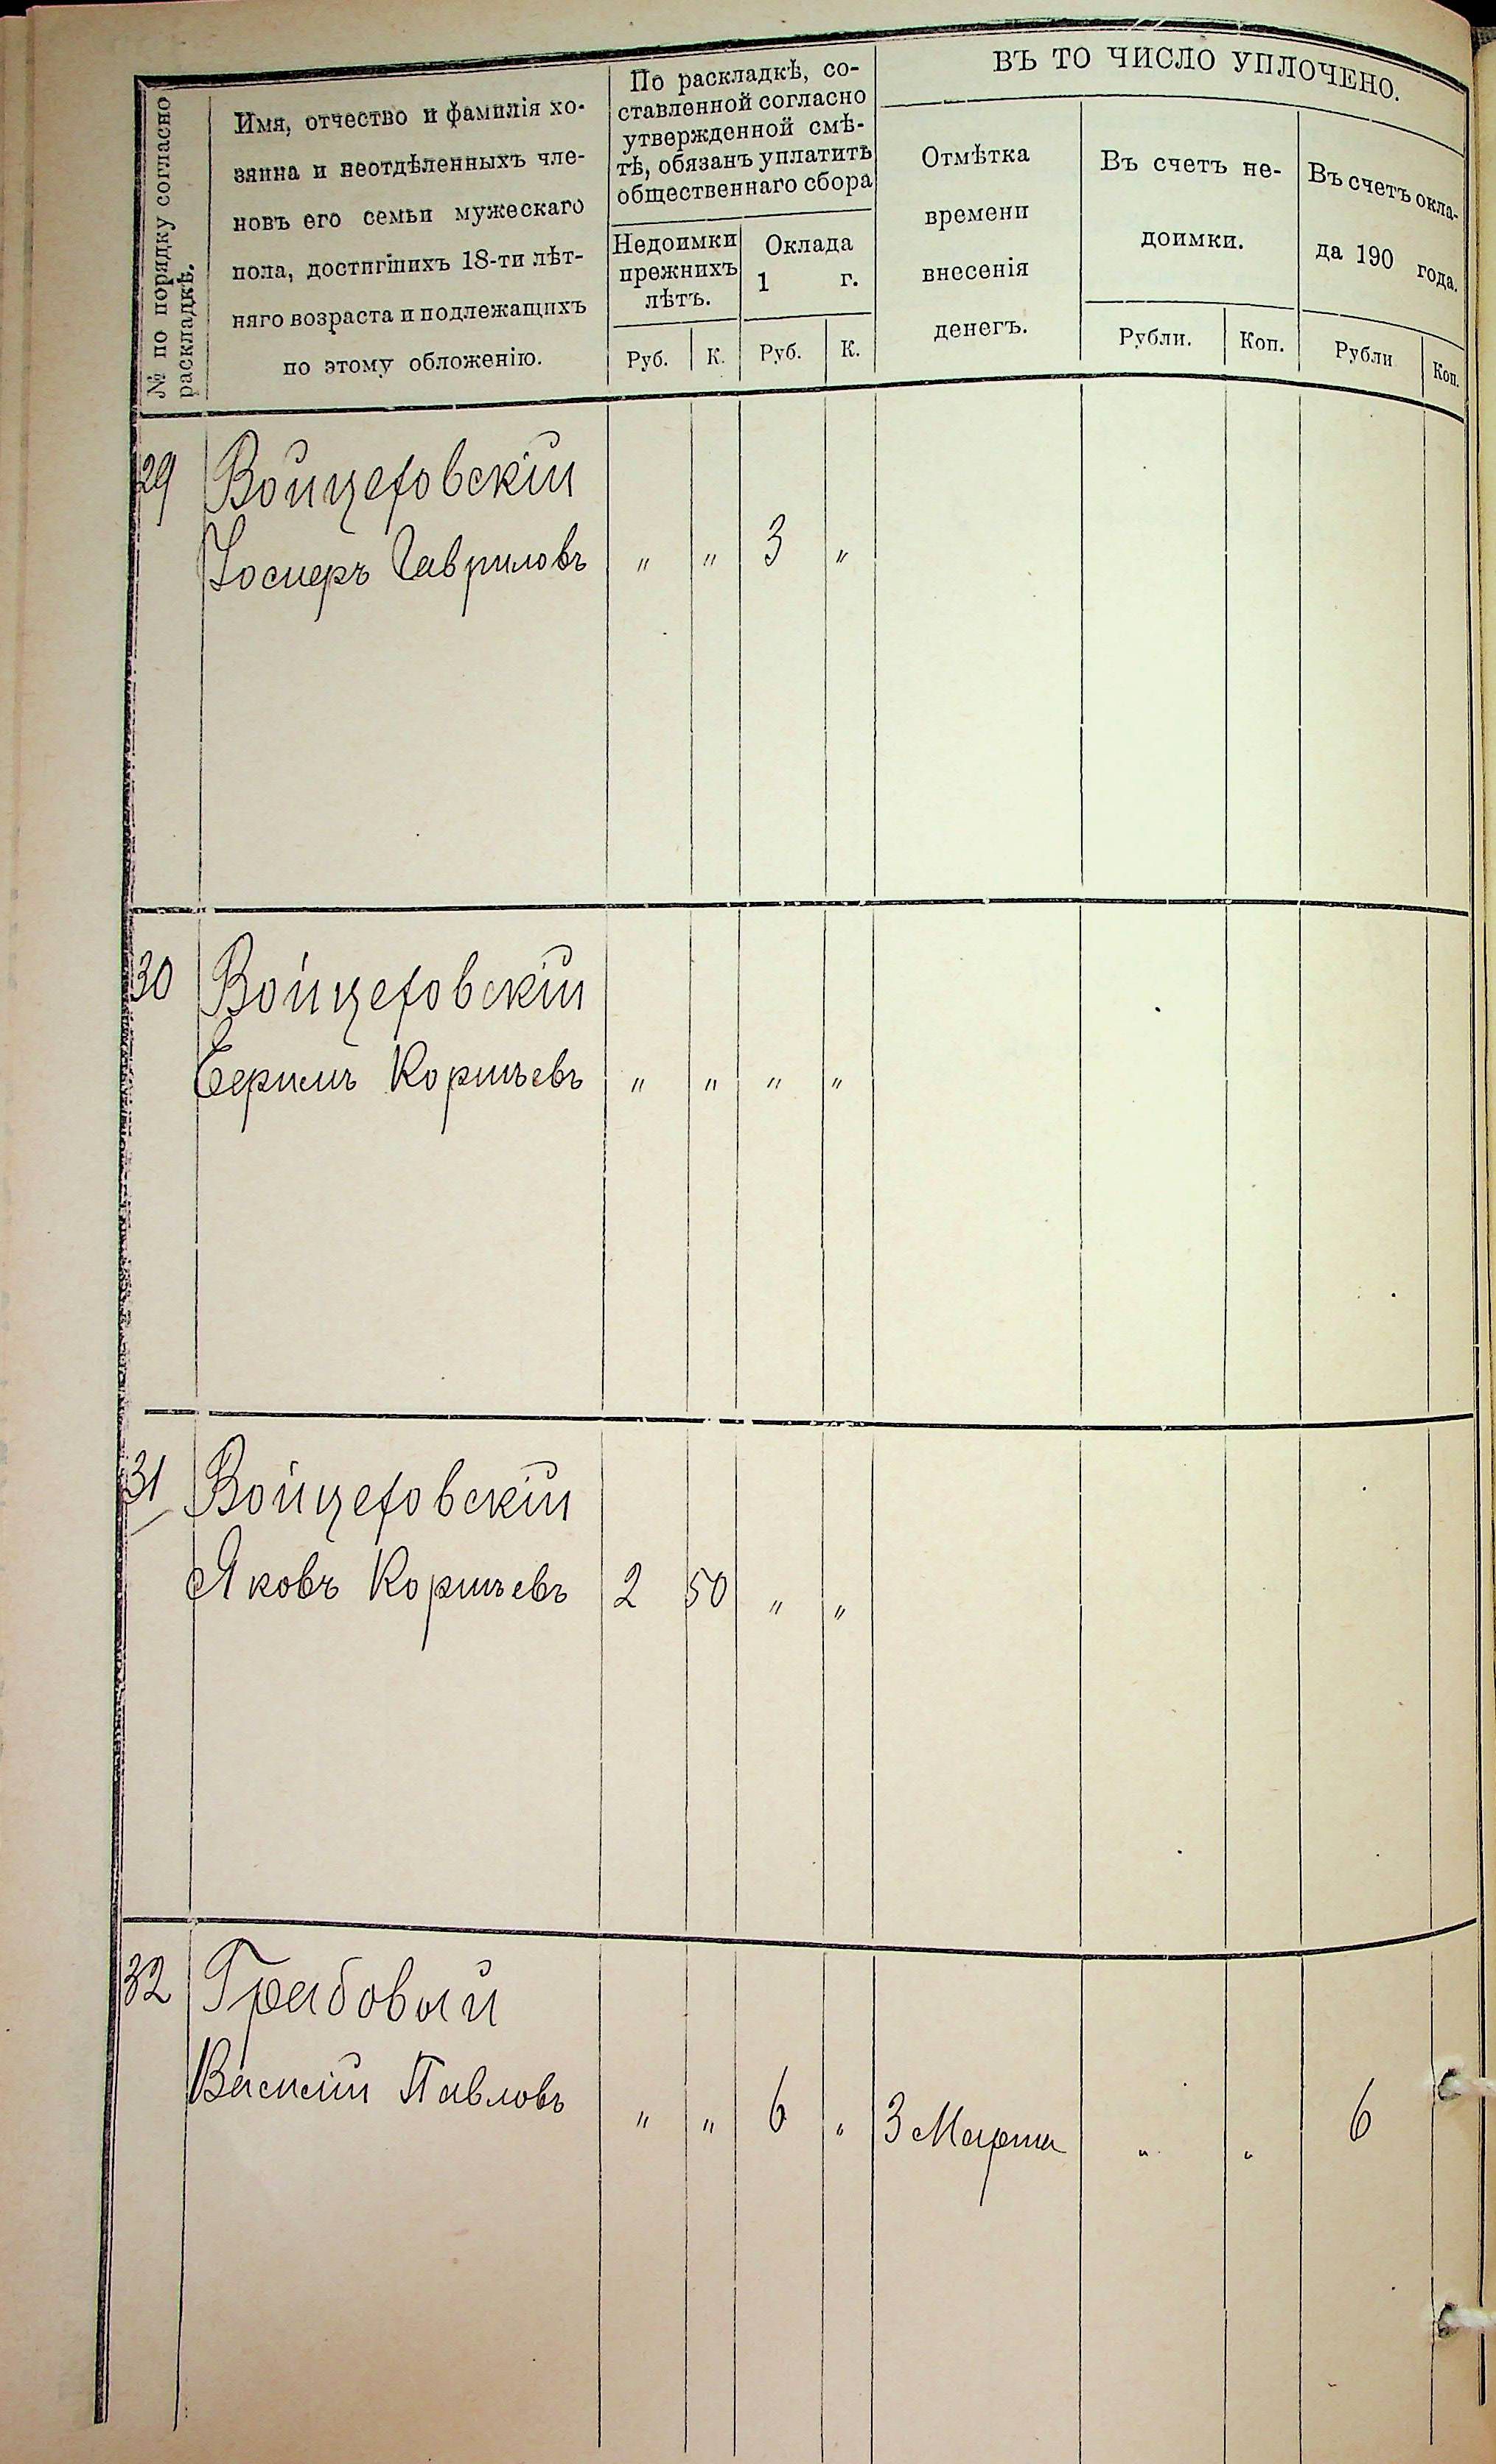 № по порядку согласно
раскладкѣ.
Имя, отчество и фамилія хо-
зяина и неотдѣленныхъ чле-
новъ его семьи мужескаго
пола, достигшихъ 18-ти лѣт-
няго возраста и подлежащихъ
по этому обложенію.
По раскладкѣ, со-
ставленной согласно
утвержденной смѣ-
тѣ, обязанъ уплатить
общественнаго сбора
Недоимки
прежнихъ
лѣтъ.
Оклада
1 г.
Руб. К. Руб. К.
ВЪ ТО ЧИСЛО УПЛОЧЕНО.
Отмѣтка
времени
внесенія
денегъ.
Въ счетъ не-
доимки.
Рубли. Коп.
Въ счетъ окла-
да 190 года.
Рубли Коп.
29 Войцеховскій
Гавриловъ " " 3 "
30 Войцеховскій
" " " "
31 Войцеховскій
Яковъ 2 50 " "
32 Грабовый
Василій Павловъ " " 6 " 3 Марта " " 6